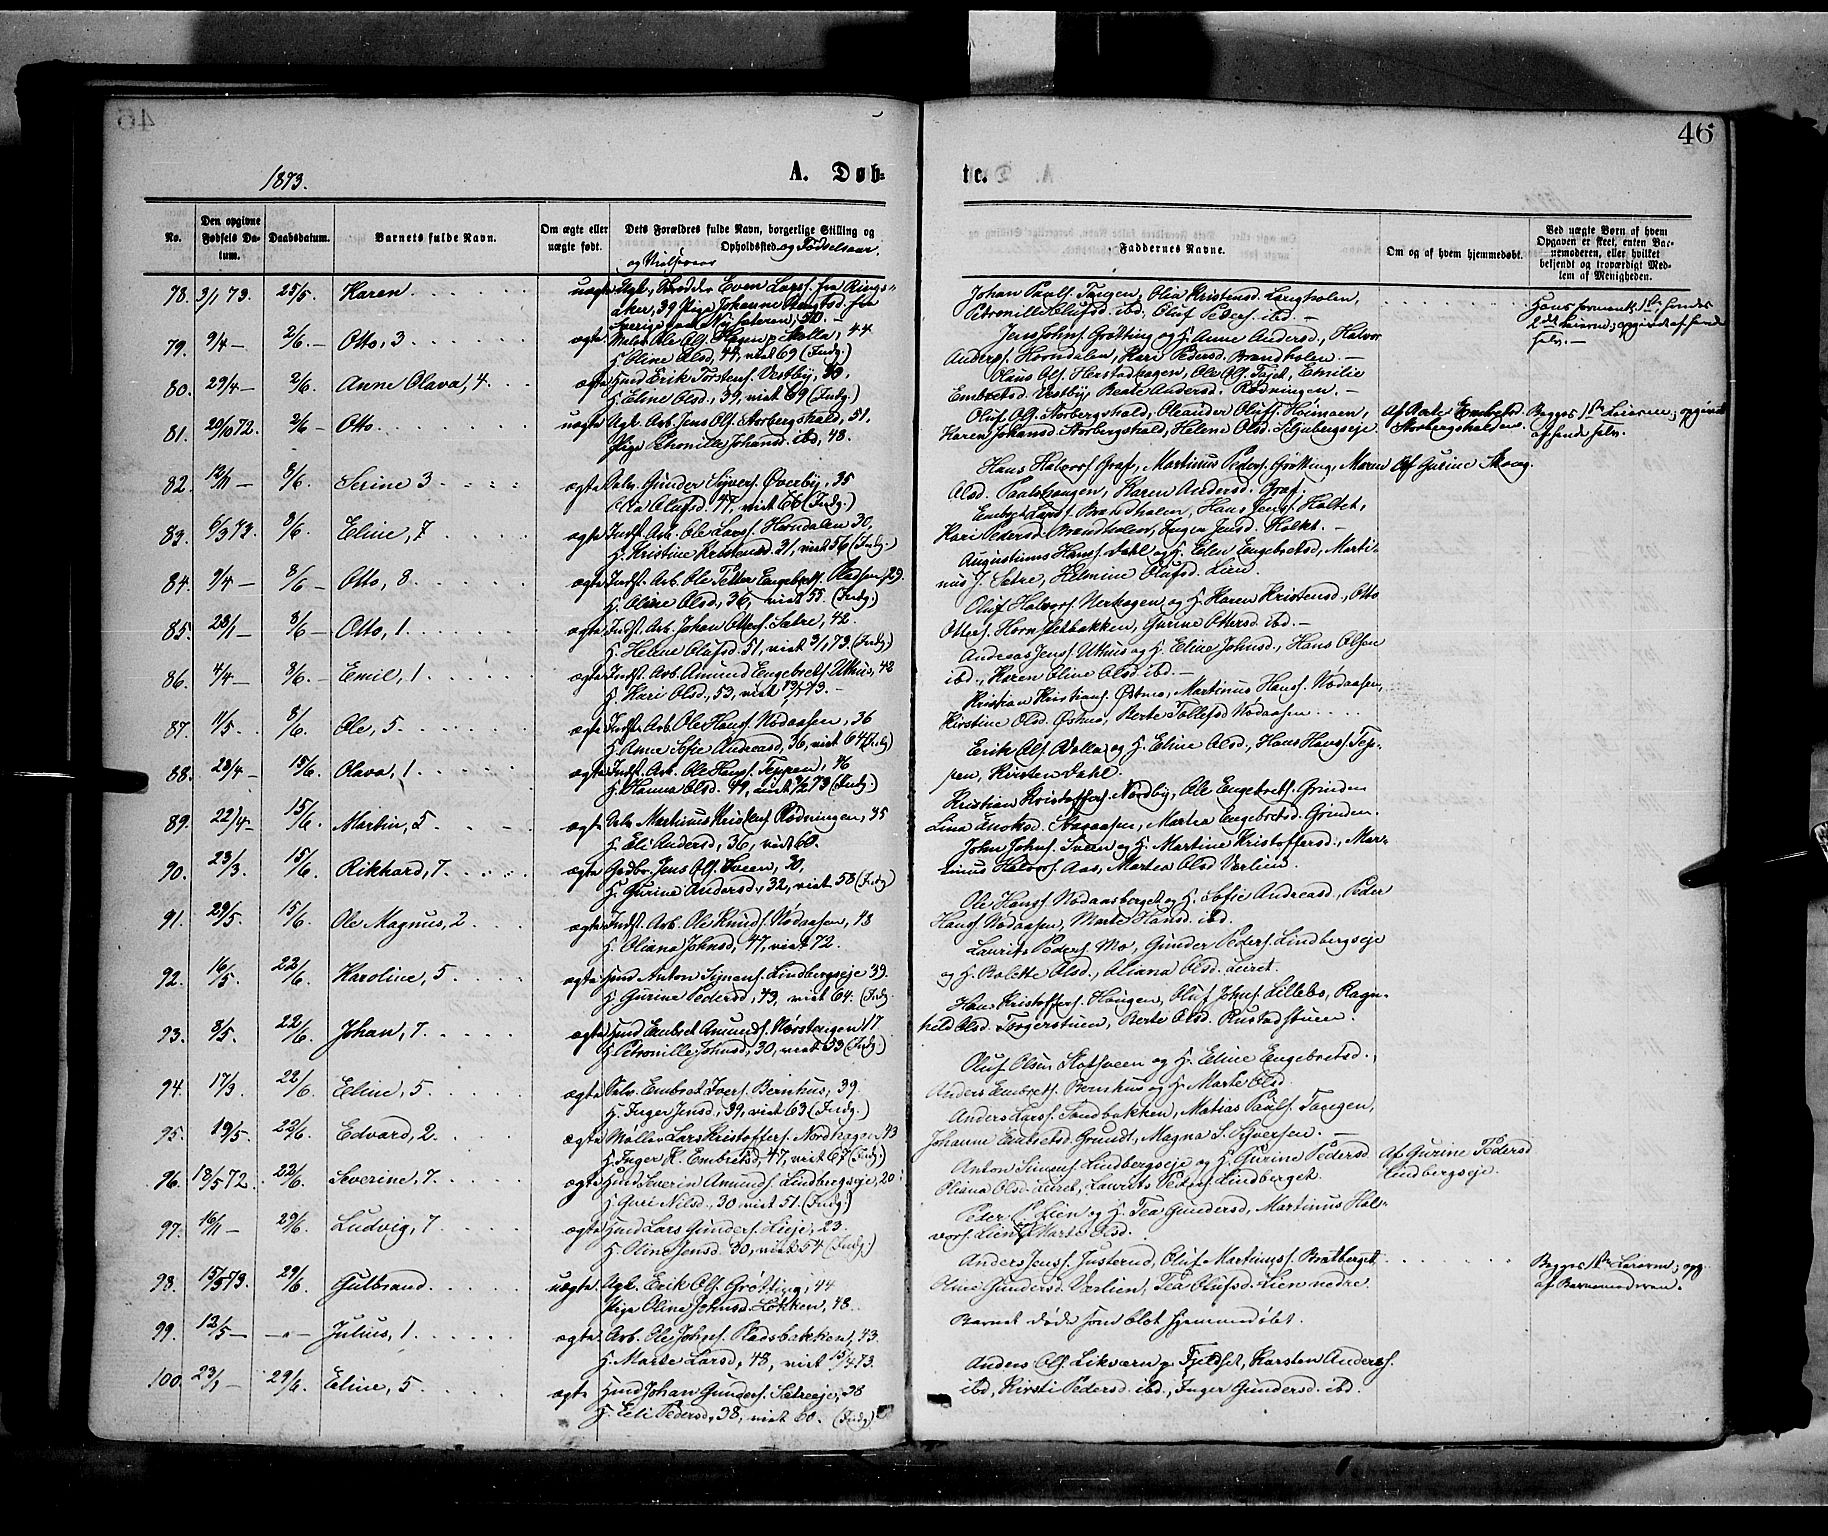 46
1873.
A. Døb-
te.
No.
Den opgivne Fødsels Datum.
Daabsdatum.
Barnets fulde Navn.
Om ægte eller uægte født.
Dets Forældres fulde Navn, borgerlige Stilling og Opholdssted og Fødselsaar. og Vielsesaar
Faddernes Navne.
Om og af hvem hjemmedøbt.
Ved uægte Børn af hvem Opgaven er skeet, enten Barnemoderen, eller hvilket bekjendt og troværdigt Medlem af Menigheden.
78. 3/1 73. 25/5. Karen uægte Ugk. Even Larss. fra Rings-
aker, 39 Pige Johanne Bengtsd. fra
Sverige, 50.
Johan Paulss. Tangen, Olia Kristensd. Langholen,
Petronille Olufsd. ibd. Oluf Peders. ibd.
79. 9/4 2/6. Otto, 3 ægte Ole Ols. Hagen p. Skolla, 44
H. Oline Olsd, 44, viet 69 (Indg.)
Jens Johns. Grøtting og H. Anne Andersd., Halvor
Anderss. Horndalen, Kari Pedersd. Brandholen.
80. 29/4 2/6. Anne Olava, 4. ægte Hmd Erik Torstens. Vestby, 30,
H. Eline Olsd., 39, viet 69 (Indg.)
Olaus Ols. Herstadhagen, Ole Ols. Faset, Emilie
Embretsd. Vestby, Beate Andersd. Rødningen.
81. 20/10 72. 2/6 Otto uægte Ugk. Arb. Jens Ols. Storbergshald, 51,
Pige Petronille Johansd. ibd, 48.
Oluf Ols. Storbergshald, Oleander Olufs. Hoimoen,
Karen Johansd. Storbergshald, Helene Olsd. Siljubergseje
Af Marte Embretsd. Storbergshalden.
Begges 1ste Leierm.; opgivet af hende selv.
82. 12/11 3/6. Serine 3 ægte Selv. Gunder Syvers. Øverby, 35
Olia Olufsd. 47, viet 66 (Indg.)
Hans Halvors. Graf, Martinus Peders. Grøtting, Maren
Olsd. Paalstangen, Karen Andersd. Graf.
Af Gurine Skoog.
83. 6/3 73. 3/6. Eline, 7 ægte Indst. Arb. Ole Larss. Horndalen 30,
H. Kristine Kristensd. 31, viet 56 (Indg.)
Embret Larss. Brandholen, Hans Jenss. Holtet,
Kari Pedersd. Brandholen, Inger Jensd. Holtet.
84. 9/4 8/6 Otto, 8 ægte Indst. Arb. Ole Petter Engebrets. Pladsen, 29.
H. Oline Olsd, 36, viet 55. (Indg.)
Augustinus Hanss. Dahl og H. Elen Engebretsd, Marti-
nus J. Sætre, Helmine Olufsd. Lien.
85. 23/1 8/6 Otto, 1. ægte Indst. Arb. Johan Otters. Sætre, 42.
H. Helene Olufsd. 51, viet 3/1 73. (Indg.)
Oluf Halvors. Nerhagen og H. Karen Kristensd., Otto
Otters. Hornsletbakken, Gurine Ottersd. ibd.
86. 4/4 8/6. Emil, 1 ægte Indst. Arb. Amund Engebrets. Uthus, 42
H. Kari Olsd., 53, viet
Andreas Jenss. Uthus og H. Eline Johnsd., Hans Olsen
ibd., Karen Oline Olsd. ibd.
87. 11/5. 8/6. Ole, 5 ægte Indst. Arb. Ole Hanss. Nodaasen, 36
H. Anne Sofie Andreasd, 36, viet 64 (Indg.)
Kristian Kristians. Østmo, Martinus Hanss. Nodaasen,
Kirstine Olsd. Østmo, Berte Tollefsd Nodaasen
88. 23/4 15/6. Olava, 1 ægte Indst. Arb. Ole Hanss. Teppen, 46
H. Hanna Olsd. 49, viet 73 (Indg.)
Erik Ols. Dolla og H. Eline Olsd, Hans Hanss. Tep-
pen, Kirsten Dahl.
89. 22/4 15/6. Martin, 5 ægte Selv. Martinus Kristens. Rødningen, 35
H. Eli Andersd., 36, viet 60.
Kristian Kristoffers. Nordby, Ole Engebrets. Grinden
Lina Staraasen, Martea Engebretsd. Grinden.
90. 23/3. 15/6. Rikhard, 7. ægte Gbr. Jens Ols. Sveen, 30,
H. Gurine Andersd., 32, viet 58 (Indg.)
John Johns. Sveen og H. Martine Kristoffersd., Mar-
tinus Halvors. Aas, Martea Olsd Værlien
91. 29/5. 15/6. Ole Magnus, 2 ægte Indst. Arb. Ole Knuds. Nodaasen, 43
H. Oliana Johnsd, 47, viet 72.
Ole Hanss. Nodaasberget og H. Sofie Andreasd., Peder
Hanss. Nodaasen, Marte Hansd. ibd.
92. 16/5 22/6. Karoline, 5 ægte Hmd Anton Simens. Lindbergseje 39.
H. Gurine Pedersd., 43, viet 64. (Indg.
Laurits Peders. Mo, Gunder Peders. Lindbergseje
og H. Bolette Olsd., Oliana Olsd. Leiret.
93. 8/5. 22/6. Johan, 7. ægte Hmd Embret Amunds. Nørstangen 17
H. Petronille Johnsd, 30, viet 53 (Indg.)
Hans Kristoffers. Haugen, Oluf Johns. Lillebo, Ragn-
hild Olsd. Torgerstuen, Berte Olsd. Rustadstuen.
94. 17/3. 22/6 Eline, 5. ægte Selv. Embret Ivers. Bernhus, 39
H. Inger Jensd., 39, viet 63 (Indg.)
Oluf Olsen Slotsveen og H. Eline Engebretsd.,
Anders Embrets. Bernhus og H. Marte Olsd.
95. 19/5. 22/6. Edvard, 2. ægte Møller Lars Kristoffers. Nordhagen, 43
H. Inger K. Embretsd, 47, viet 67 (Indg.)
Anders Larss. Sandbakken, Matias Paulss. Tangen,
Johanne Embretsd. Grundt, Magna S. Syversen.
96. 18/5 72. 22/6. Severine, 7. ægte Hmd Severin Amunds. Lindbergseje, 20
H. Guri Nilsd., 30 viet 51. (Indg.)
Anton Simens. Lindbergseje og H. Gurine Pedersd
Oliana Olsd. Leiret, Laurits Peders. Lindberget.
Af Gurine Pedersd Lindbergseje.
97. 16/11 29/6. Ludvig, 7 ægte Hmd Lars Gunders. Lieje, 23.
H. Oline Jensd. 30, viet 54 (Indg.)
Peder C. Lien og H. Tea Gundersd, Martinus Hal-
vors. Lien, Marte Olsd.
98. 15/3 73. 29/6. Gulbrand. uægte Ugk. Erik Ols. Grøtting, 44
Pige Oline Johnsd. Løkken, 48.
Anders Jenss. Justerud, Oluf Martinuss. Bratberget
Oline Gundersd. Værlien, Tea Olufsd. Lien nedre
Begges 1ste Leierm.; opg. af Barnemoderen.
99. 12/5 -"- Julius, 1 ægte Arb. Ole Johns. Pladsbakken, 43.
H. Marte Larsd, 48, viet 15/4 73.
Barnet døde som blot hjemmedøbt.
100. 23/1 29/6. Eline, 5. ægte Hmd Johan Gunders. Sætreeje, 38
H. Eli Pedersd, 38, viet 60. (Indg.)
Anders Ols. Likværn p. Fjeldset, Karsten Anderss.
ibd, Kirsti Pedersd. ibd., Inger Gundersd. ibd.